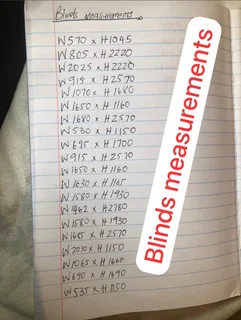 Blinds measurements.
W 570 x H 1045
W 805 x H 2220
W 2025 x H 2220
W 915 x H 2570
W 1070 x H 1680
W 1650 x H 1160
W 1680 x H 2570
W 530 x H 1150
W 695 x H 1700
W 915 x H 2570
W 1650 x H 1160
W 1630 x H 1165
W 1580 x H 1930
W 1462 x H 2760
W 1580 x H 1930
W 1685 x H 2570
W 2010 x H 1150
W 1065 x H 1660
W 690 x H 1690
W 535 x H 1150
Blinds measurements